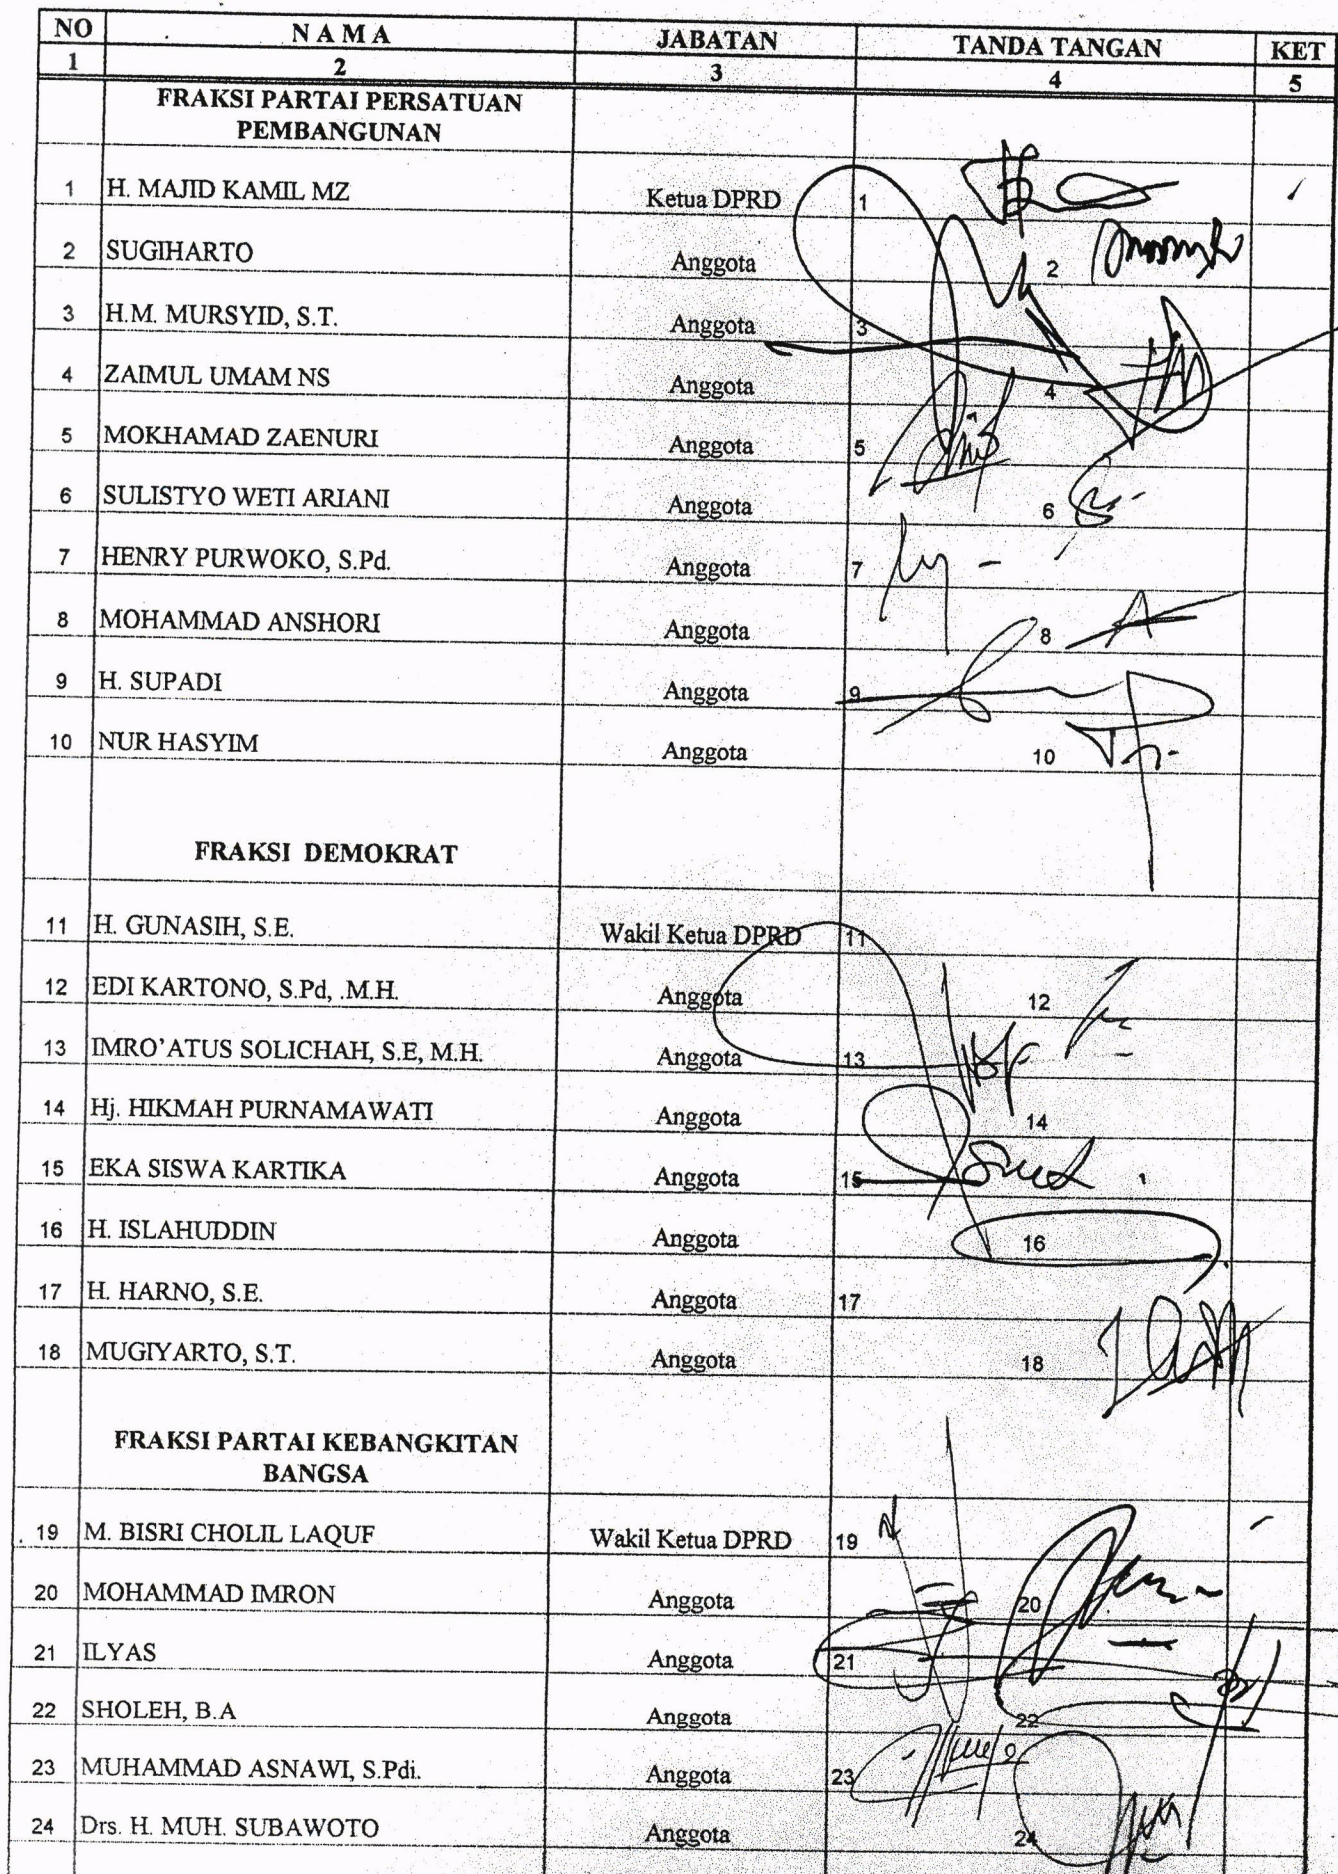 NO NAMA JABATAN TANDA TANGAN KET
1 2 3 4 5
FRAKSI PARTAI PERSATUAN
PEMBANGUNAN
1 H. MAJID KAMIL MZ Ketua DPRD 1
2 SUGIHARTO Anggota 2
3 H.M. MURSYID, S.T. Anggota 3
4 ZAIMUL UMAM NS Anggota 4
5 MOKHAMAD ZAENURI Anggota 5
6 SULISTYO WETI ARIANI Anggota 6
7 HENRY PURWOKO, S.Pd. Anggota 7
8 MOHAMMAD ANSHORI Anggota 8
9 H. SUPADI Anggota 9
10 NUR HASYIM Anggota 10
FRAKSI DEMOKRAT
11 H. GUNASIH, S.E. Wakil Ketua DPRD 11
12 EDI KARTONO, S.Pd, .M.H. Anggota 12
13 IMRO’ATUS SOLICHAH, S.E, M.H. Anggota 13
14 Hj. HIKMAH PURNAMAWATI Anggota 14
15 EKA SISWA KARTIKA Anggota 15
16 H. ISLAHUDDIN Anggota 16
17 H. HARNO, S.E. Anggota 17
18 MUGIYARTO, S.T. Anggota 18
FRAKSI PARTAI KEBANGKITAN
BANGSA
19 M. BISRI CHOLIL LAQUF Wakil Ketua DPRD 19
20 MOHAMMAD IMRON Anggota 20
21 ILYAS Anggota 21
22 SHOLEH, B.A Anggota 22
23 MUHAMMAD ASNAWI, S.Pdi. Anggota 23
24 Drs. H. MUH. SUBAWOTO Anggota 24